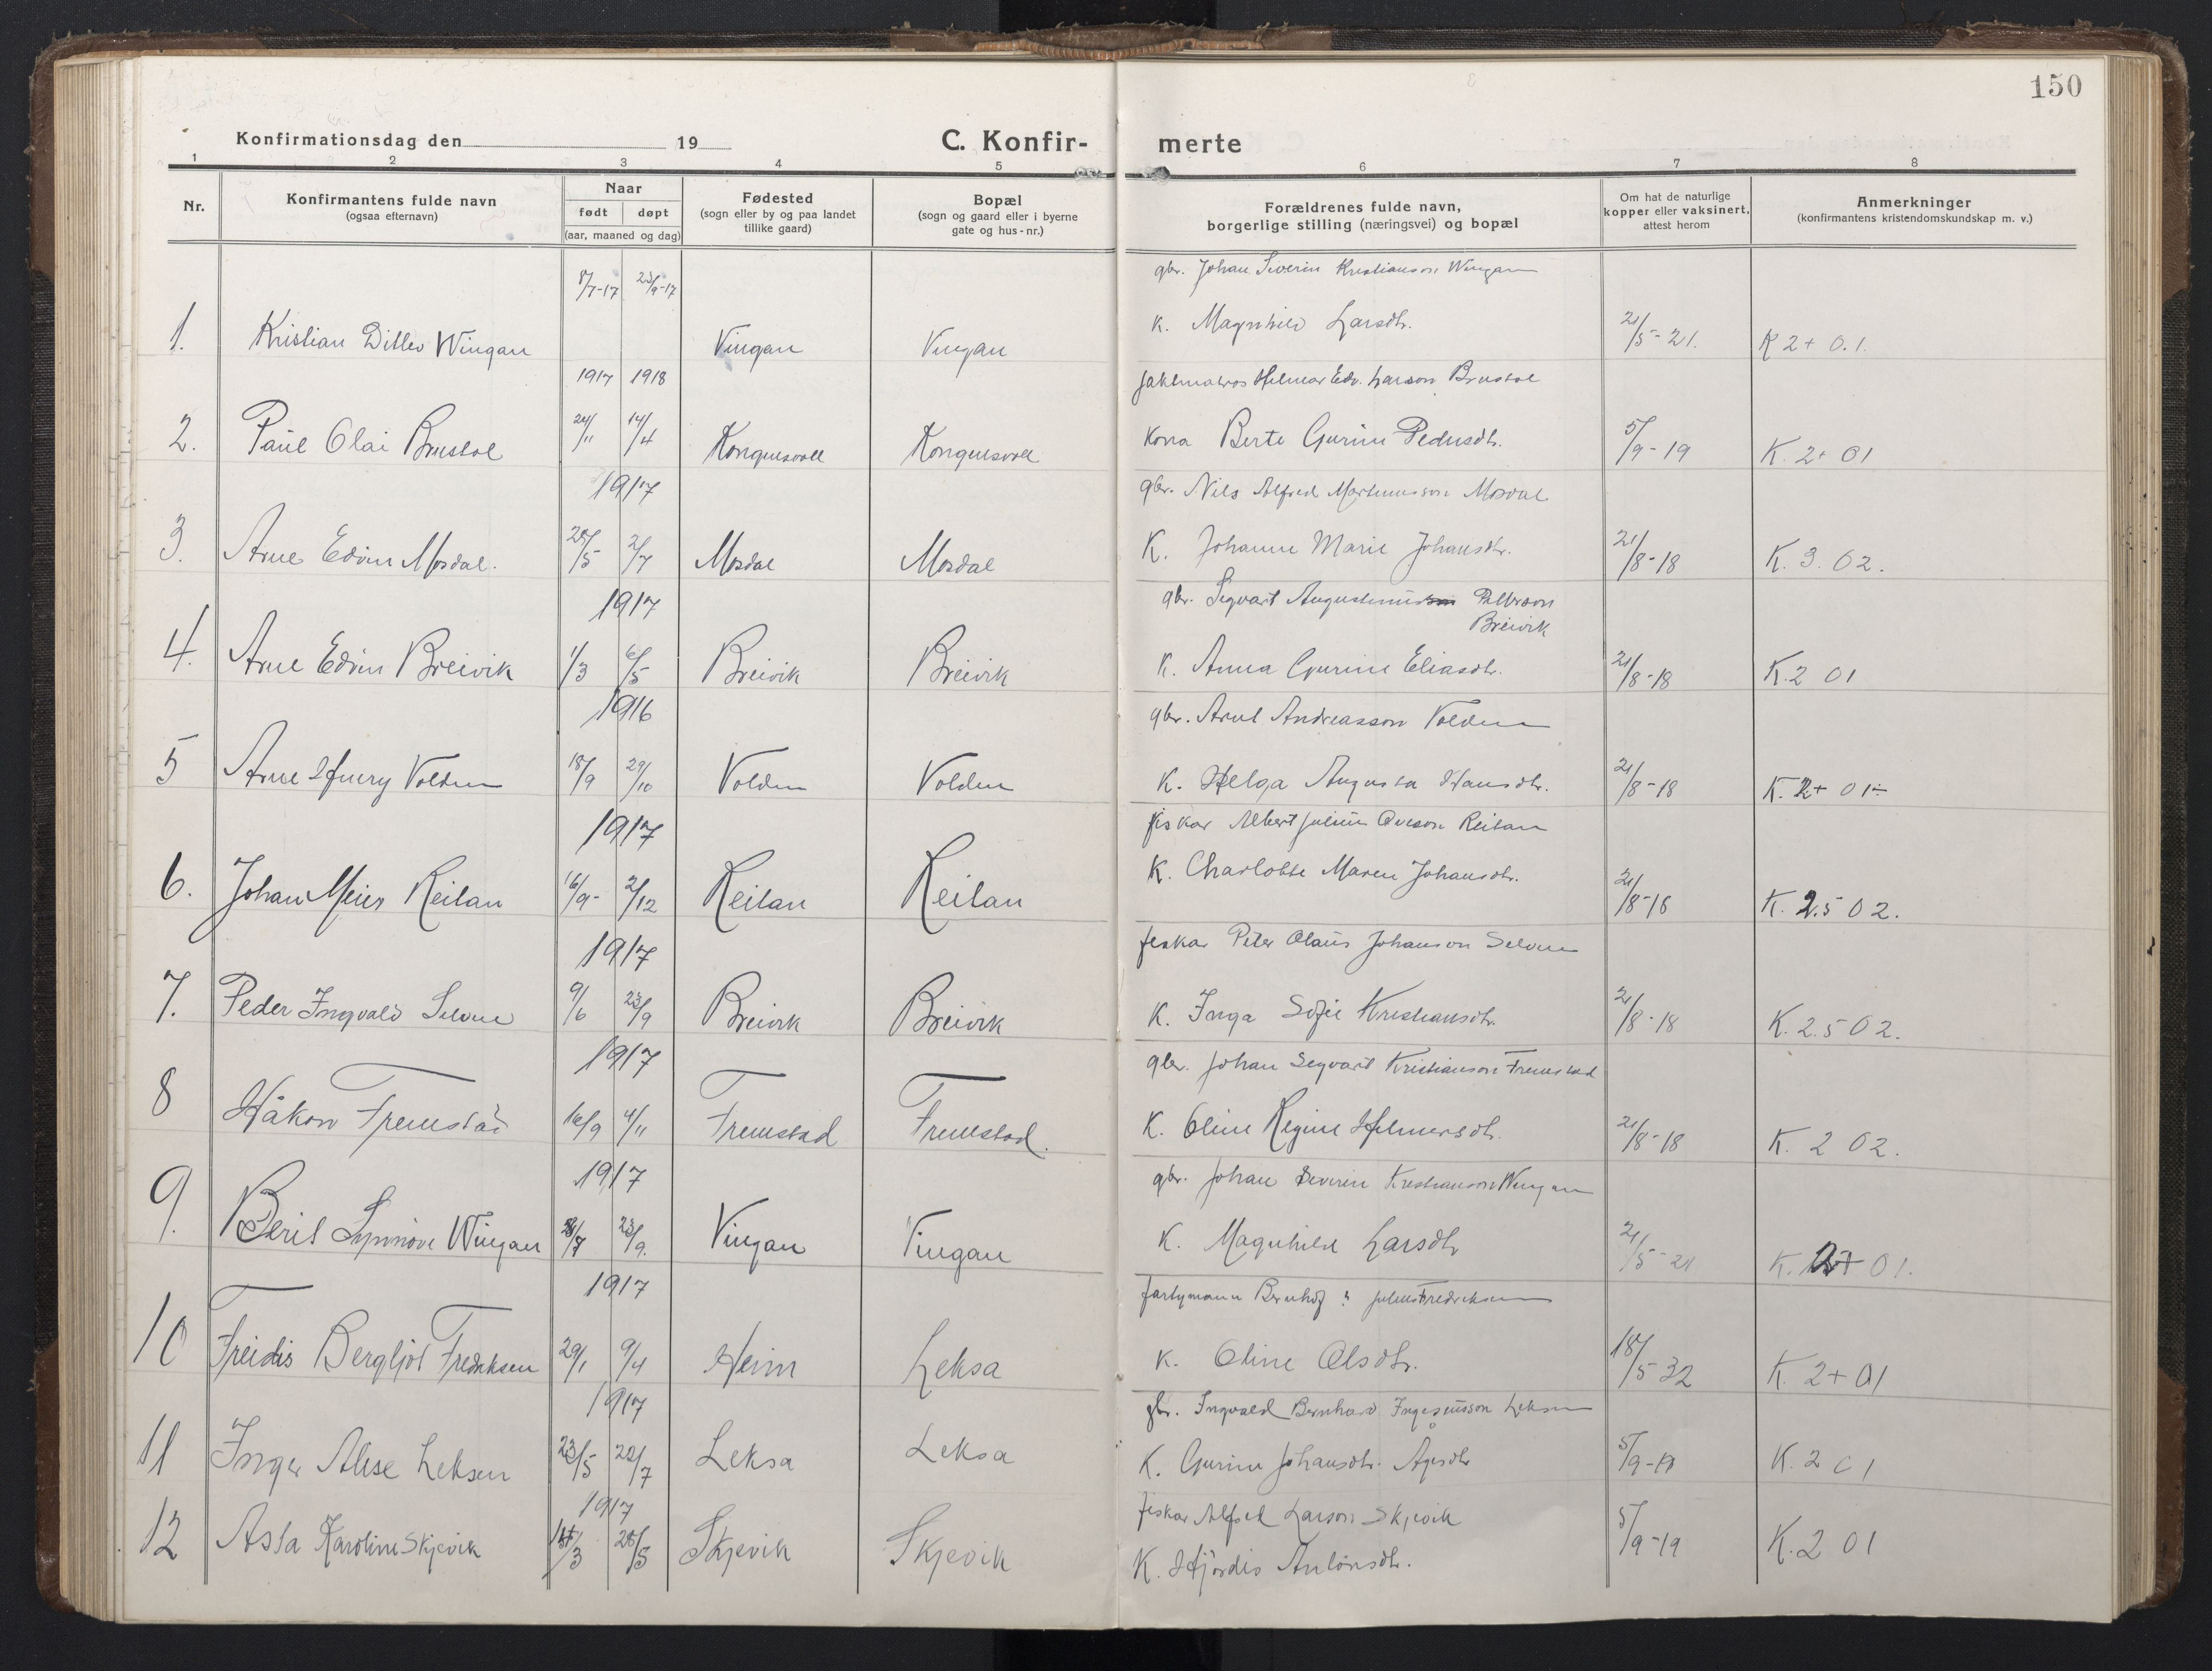 150
Konfirmationsdag den 19
C. Konfir-
merte
1 2 3 4 5 6 7 8
Nr.
Konfirmantens fulde navn
(ogsaa efternavn)
Naar
født døpt
(aar, maaned og dag)
Fødested
(sogn eller by og paa landet
tillike gaard)
Bopæl
(sogn og gaard eller i byerne
gate og hus-nr.)
Forældrenes fulde navn,
borgerlige stilling (næringsvei) og bopæl
Om hat de naturlige
kopper eller vaksinert,
attest herom
Anmerkninger
(konfirmantens kristendomskundskap m. v.)
8/7-17 23/9-17 gbr. Johan Severin Kristianson Wingan
1. Kristian Ditlev Wingan Vingan Vingan K. Magnhild Larsdtr. 21/5-21. K 2+ 0.1.
1917 1918 Helmer Edv. Larson Brustol
2. Paul Olai Brustol 24/11 14/4 Kongensvoll Kongensvoll Kona Berte Gurine Pedersdtr. 5/9-19 K. 2+ 01
1917 gbr. Nils Alfred Martinusson Mosdal
3. Arne Edvin Mosdal. 28/5 2/7 Mosdal Mosdal K. Johanne Marie Johansdtr. 21/8-18 K. 3. 02.
1917 gbr. Segvart Augustinusson Petterson
Breivik
4. Arne Edvin Breivik 1/3 6/5 Breivik Breivik K. Anna Gurine Eliasdtr. 21/8-18 K.2 01
1916 gbr. Arnt Andreasson Volden
5 Arne Henry Volden 18/9 29/10 Volden Volden K. Helga Augusta Hansdtr. 21/8-18 K. 2+ 01÷
1917 fiskar Albert Julius Oveson Reitan
6. Johan Meier Reitan 16/9- 2/12 Reitan Reitan K. Charlotte Maren Johansdtr. 21/8-18 K. 2.5 02.
1917 feskar Peter Olaus Johanson Selvne
7. Peder Ingvald Selvne 9/6 23/9 Breivik Breivik K. Inga Sofie Kristiansdtr. 21/8-18 K. 2.5 02.
1917 gbr. Johan Segvart Kristianson Fremstad
8 Håkon Fremstad 16/9 4/11 Fremstad Fremstad. K. Oline Regine Helmersdtr. 21/8-18 K. 2 02.
1917 gbr. Johan Severin Kristianson Wingan
9. Beril Synnøve Wingan 8/7 23/9. Vingan Vingan K. Magnhild Larsdtr 21/5-21 K. 2+ 01.
1917 fartymann Bernhof Julius Fredriksen
10 Freidis Bergljot Fredriksen 29/1 9/4 Heim Leksa K. Oline Olsdtr. 18/5-32 K. 2+ 01
1917 gbr. Ingvald Bernhard Leksen
11 Inger Alise Leksen 23/5 22/7 Leksa Leksa K. Gurine Johansdtr. Ågesdtr 5/9-19 K. 2 01
1917 feskar Alfred Larson Skjevik
12 Asta Karoline Skjevik 14/3 28/5 Skjevik Skjevik K. Hjördis Antonsdtr. 5/9-19 K.2 01